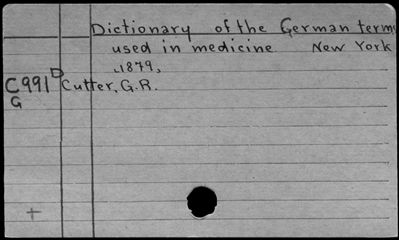 Dictionary of the German terms
used in medicine New York
1879,
C991 D Cutter, G.R.
G
+